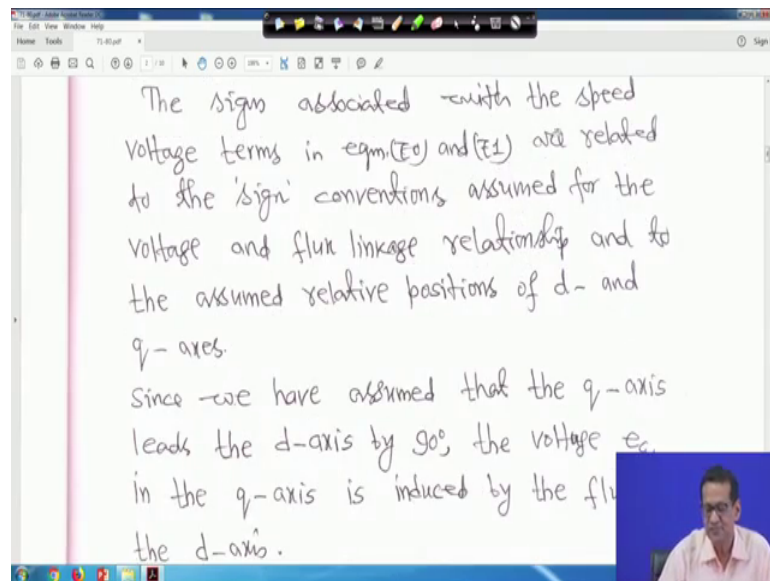 71-80.pdf - Adobe Acrobat Reader DC
File Edit View Window Help
Home Tools 71-80.pdf × Sign
The sign associated with the speed
voltage terms in eqn.(70) and (71) are related
to the 'sign' conventions assumed for the
voltage and flux linkage relationship and to
the assumed relative positions of d- and
q- axes.
Since we have assumed that the q-axis
leads the d-axis by 90°, the voltage
in the q-axis is induced by the
the d-axis.